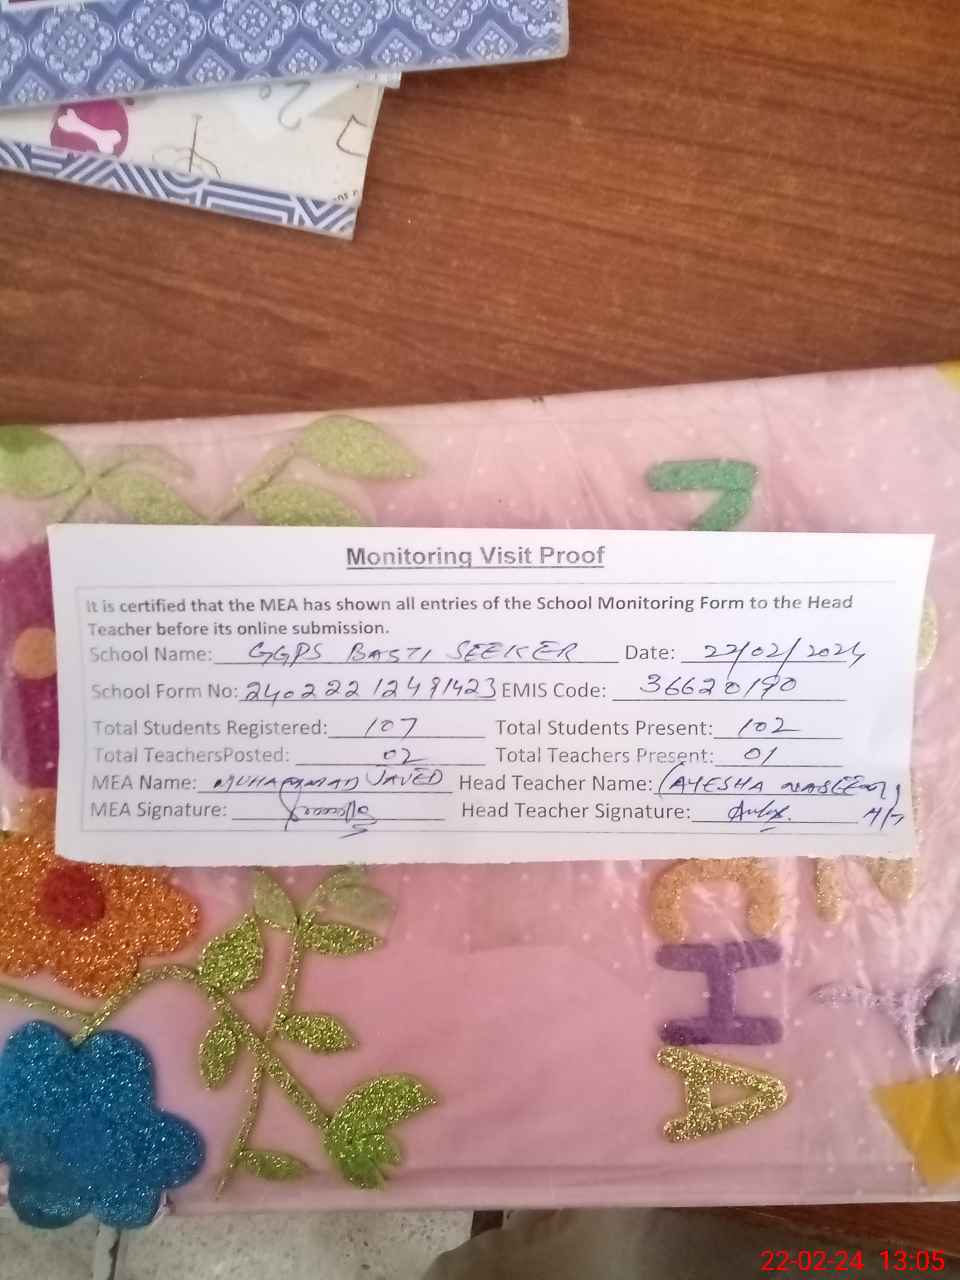 Monitoring Visit Proof
It is certified that the MEA has shown all entries of the School Monitoring Form to the Head
Teacher before its online submission.
School Name: GGPS BASTI SEEKER Date: 22/02/2024
School Form No: 24022212491423 EMIS Code: 36620190
Total Students Registered: 107 Total Students Present: 102
Total TeachersPosted: 02 Total Teachers Present: 01
MEA Name: MUHAMMAD JAVED Head Teacher Name: (AYESHA NASEEM)
MEA Signature: Head Teacher Signature: H/T
C
H
A
22-02-24 13:05